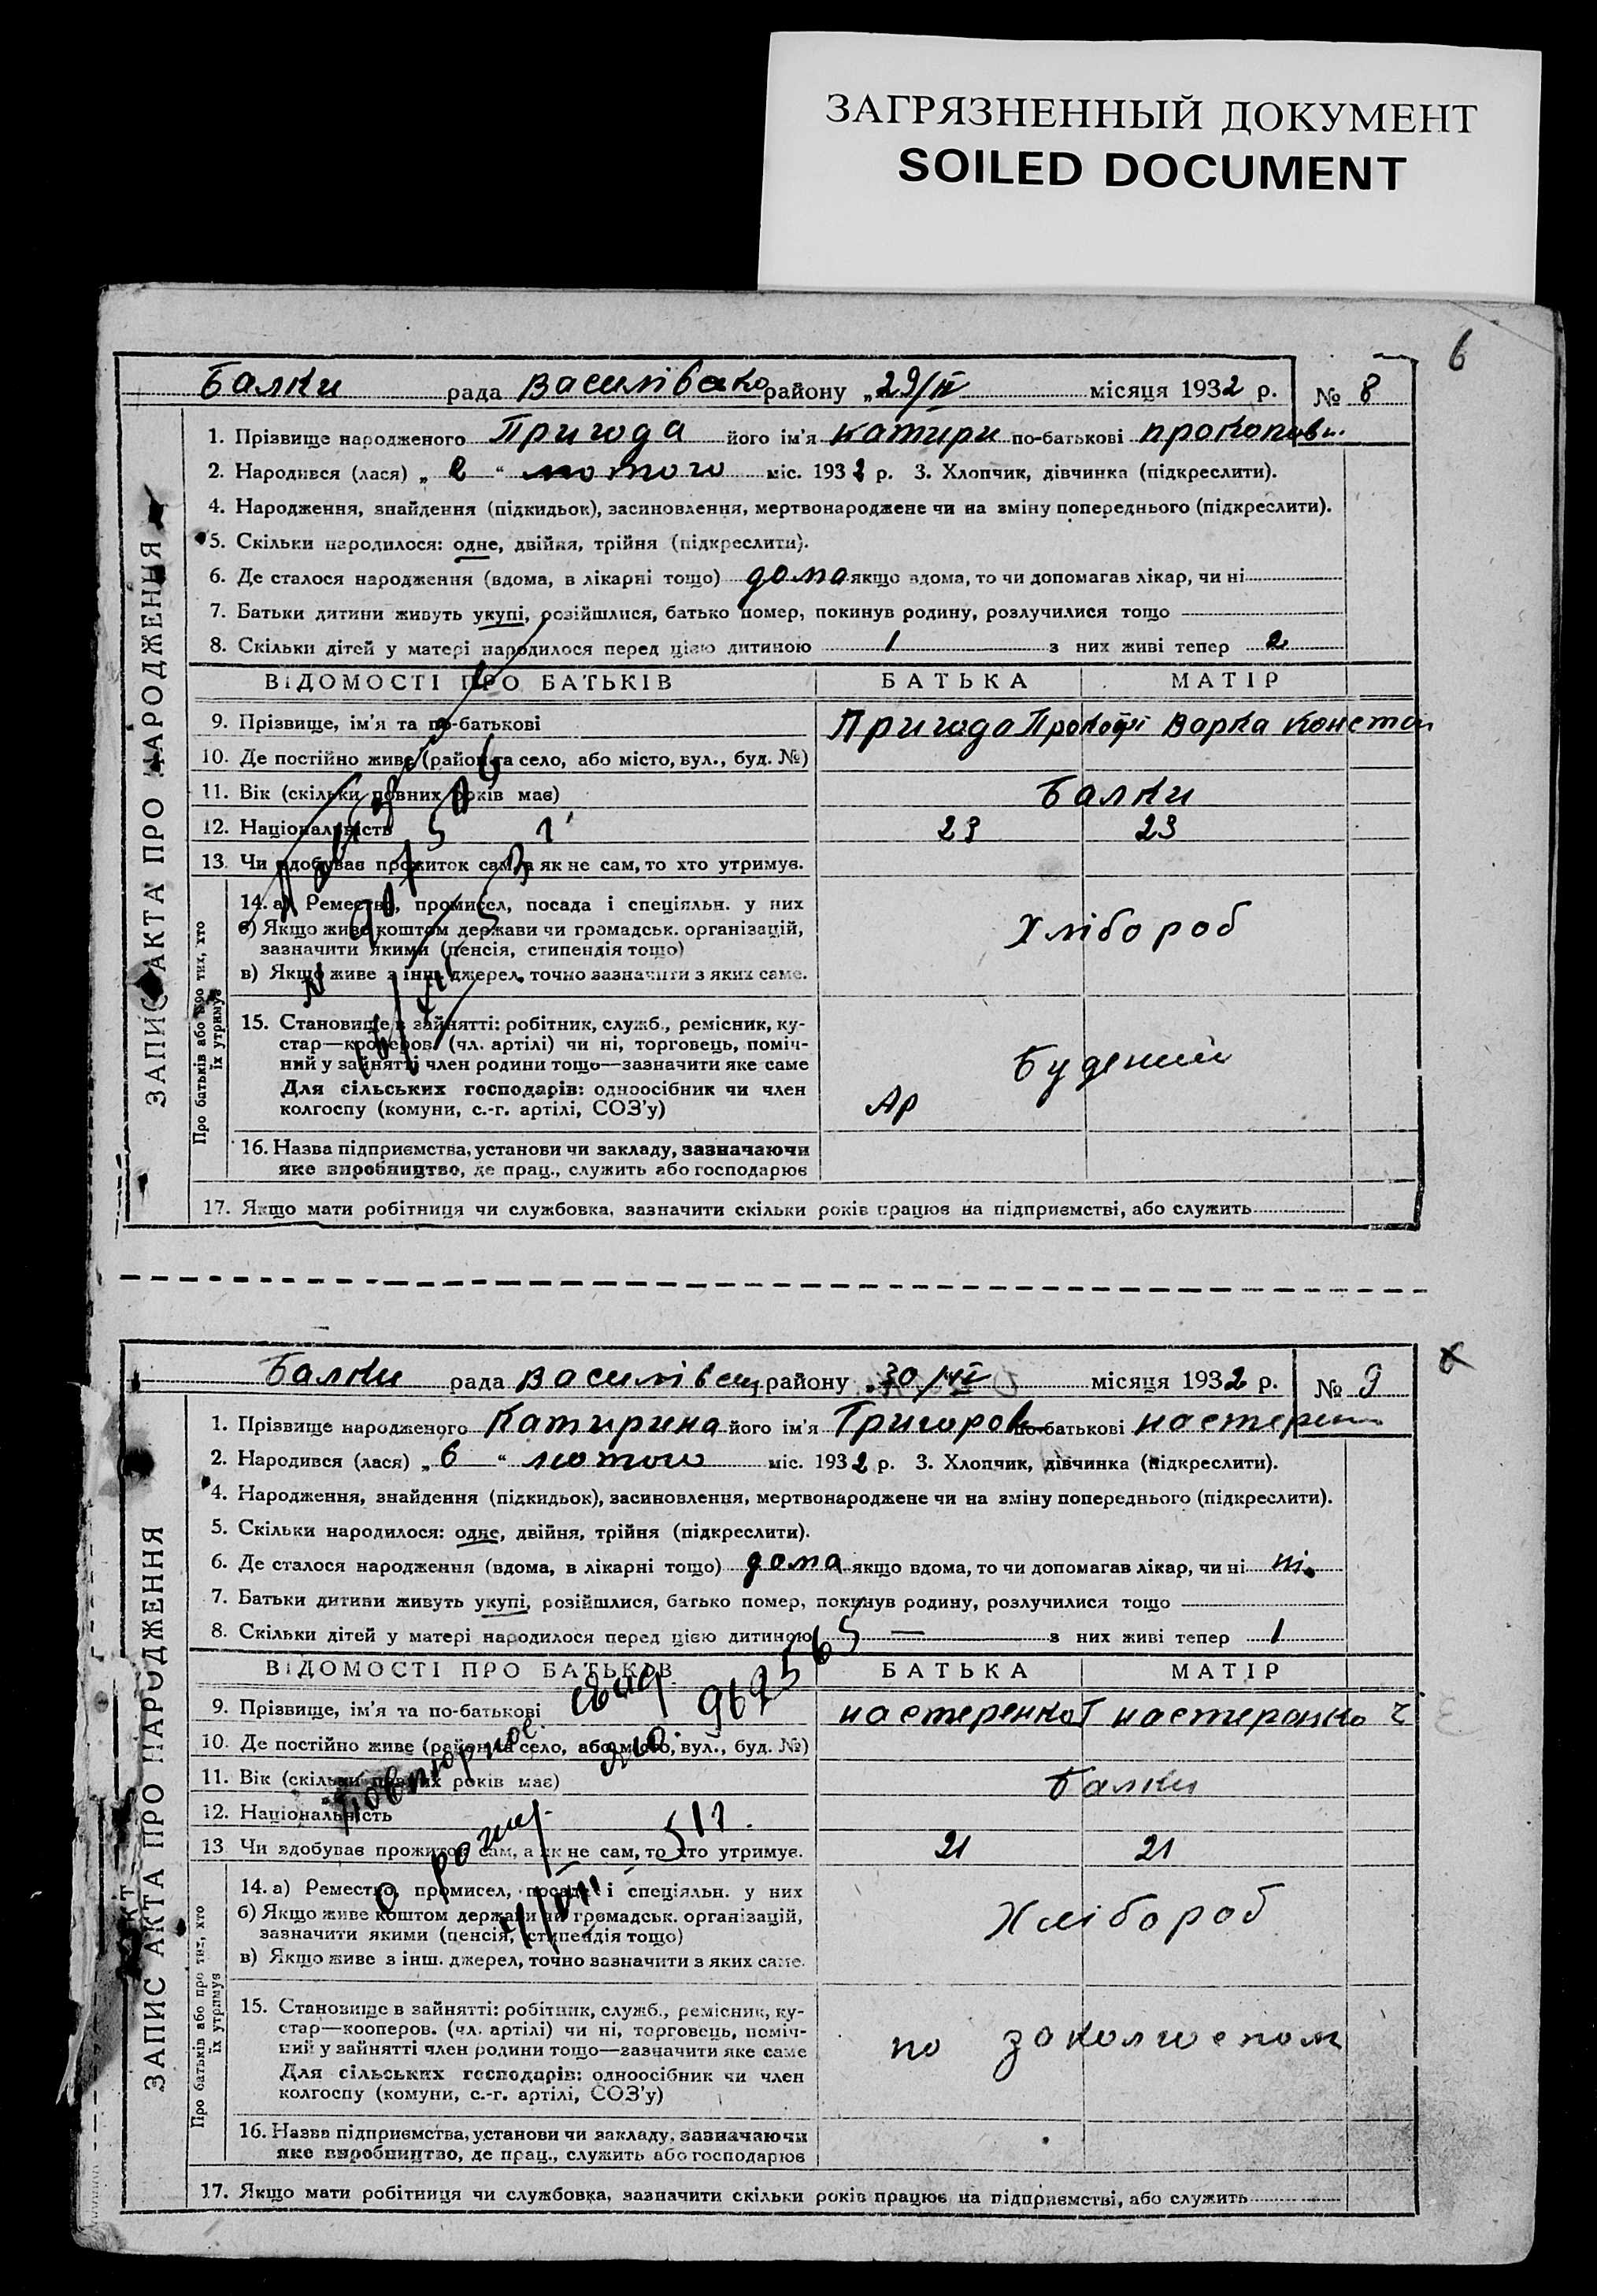 ЗАГРЯЗНЕННЫЙ ДОКУМЕНТ
SOILED DOCUMENT
6
Балки рада району „29/IV місяця 1932 р. № 8
ЗАПИС АКТА ПРО НАРОДЖЕННЯ
1. Прізвище народженого Пригода його ім'я Катири по-батькові
2. Народився (лася) „2“ лютого міс. 1932 р. 3. Хлопчик, дівчинка (підкреслити).
4. Народження, знайдення (підкидьок), засиновлення, мертвонароджене чи на зміну попереднього (підкреслити).
5. Скільки народилося: одне, двійня, трійня (підкреслити).
6. Де сталося народження (вдома, в лікарні тощо) дома якщо вдома, то чи допомагав лікар, чи ні
7. Батьки дитини живуть укупі, розійшлися, батько помер, покинув родину, розлучилися тощо
8. Скільки дітей у матері народилося перед цією дитиною 1 з них живі тепер 2
ВІДОМОСТІ ПРО БАТЬКІВ БАТЬКА МАТІР
9. Прізвище, ім'я та по-батькові Пригода Варка
10. Де постійно живе (район та село, або місто, вул., буд. №)
11. Вік (скільки повних років має) Балки
12. Національність 23 23
13. Чи здобуває прожиток сам, а як не сам, то хто утримує.
Про батьків або про тих, хто їх утримує
14. а) Ремество, промисел, посада і спеціяльн. у них
б) Якщо живе коштом держави чи громадськ. організацій,
зазначити якими (пенсія, стипендія тощо)
Хлібороб
в) Якщо живе з інш. джерел, точно зазначити з яких саме.
15. Становище в зайнятті: робітник, служб., ремісник, ку-
стар—кооперов. (чл. артілі) чи ні, торговець, поміч-
ний у зайнятті член родини тощо—зазначити яке саме
Для сільських господарів: одноосібник чи член
колгоспу (комуни, с.-г. артілі, СОЗ'у)
Ар
16. Назва підприємства, установи чи закладу, зазначаючи
яке виробництво, де прац., служить або господарює
17. Якщо мати робітниця чи службовка, зазначити скільки років працює на підприємстві, або служить
Балки рада району місяця 1932 р. № 9
ЗАПИС АКТА ПРО НАРОДЖЕННЯ
1. Прізвище народженого Катирина його ім'я Григоров по-батькові
2. Народився (лася) „6“ лютого міс. 1932 р. 3. Хлопчик, дівчинка (підкреслити).
4. Народження, знайдення (підкидьок), засиновлення, мертвонароджене чи на зміну попереднього (підкреслити).
5. Скільки народилося: одне, двійня, трійня (підкреслити).
6. Де сталося народження (вдома, в лікарні тощо) дома якщо вдома, то чи допомагав лікар, чи ні ні.
7. Батьки дитини живуть укупі, розійшлися, батько помер, покинув родину, розлучилися тощо
8. Скільки дітей у матері народилося перед цією дитиною — з них живі тепер 1
ВІДОМОСТІ ПРО БАТЬКІВ БАТЬКА МАТІР
9. Прізвище, ім'я та по-батькові настеренко Г
10. Де постійно живе (район та село, або місто, вул., буд. №)
11. Вік (скільки повних років має) Балки
12. Національність
13. Чи здобуває прожиток сам, а як не сам, то хто утримує. 21 21
Про батьків або про тих, хто їх утримує
14. а) Ремество, промисел, посада і спеціяльн. у них
б) Якщо живе коштом держави чи громадськ. організацій,
зазначити якими (пенсія, стипендія тощо)
Хлібороб
в) Якщо живе з інш. джерел, точно зазначити з яких саме.
15. Становище в зайнятті: робітник, служб., ремісник, ку-
стар—кооперов. (чл. артілі) чи ні, торговець, поміч-
ний у зайнятті член родини тощо—зазначити яке саме
Для сільських господарів: одноосібник чи член
колгоспу (комуни, с.-г. артілі, СОЗ'у)
16. Назва підприємства, установи чи закладу, зазначаючи
яке виробництво, де прац., служить або господарює
17. Якщо мати робітниця чи службовка, зазначити скільки років працює на підприємстві, або служить